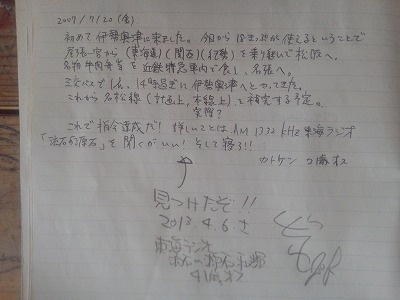 2007/7/20 (金)
初めて伊勢奥津に来ました。今日から 18きっぷが使えるということで
尾張一宮から (東海道) (関西) (紀勢) を乗り継いで松阪へ。
名物牛肉弁当を近鉄特急車内で食し、名張へ。
三交バスで1h。14時過ぎに伊勢奥津へとやってきた。
これから名松線 (計画上、本線上) を 完する予定。
実際?
これで指令達成だ! 詳しいことは AM 1332 kHz 東海ラジオ
「 石の原石」を聞くがいい! そして寝ろ!!
カトケン 2歳 オス
見つけたぞ!!
2013.4.6.
東海ラジオ
オス